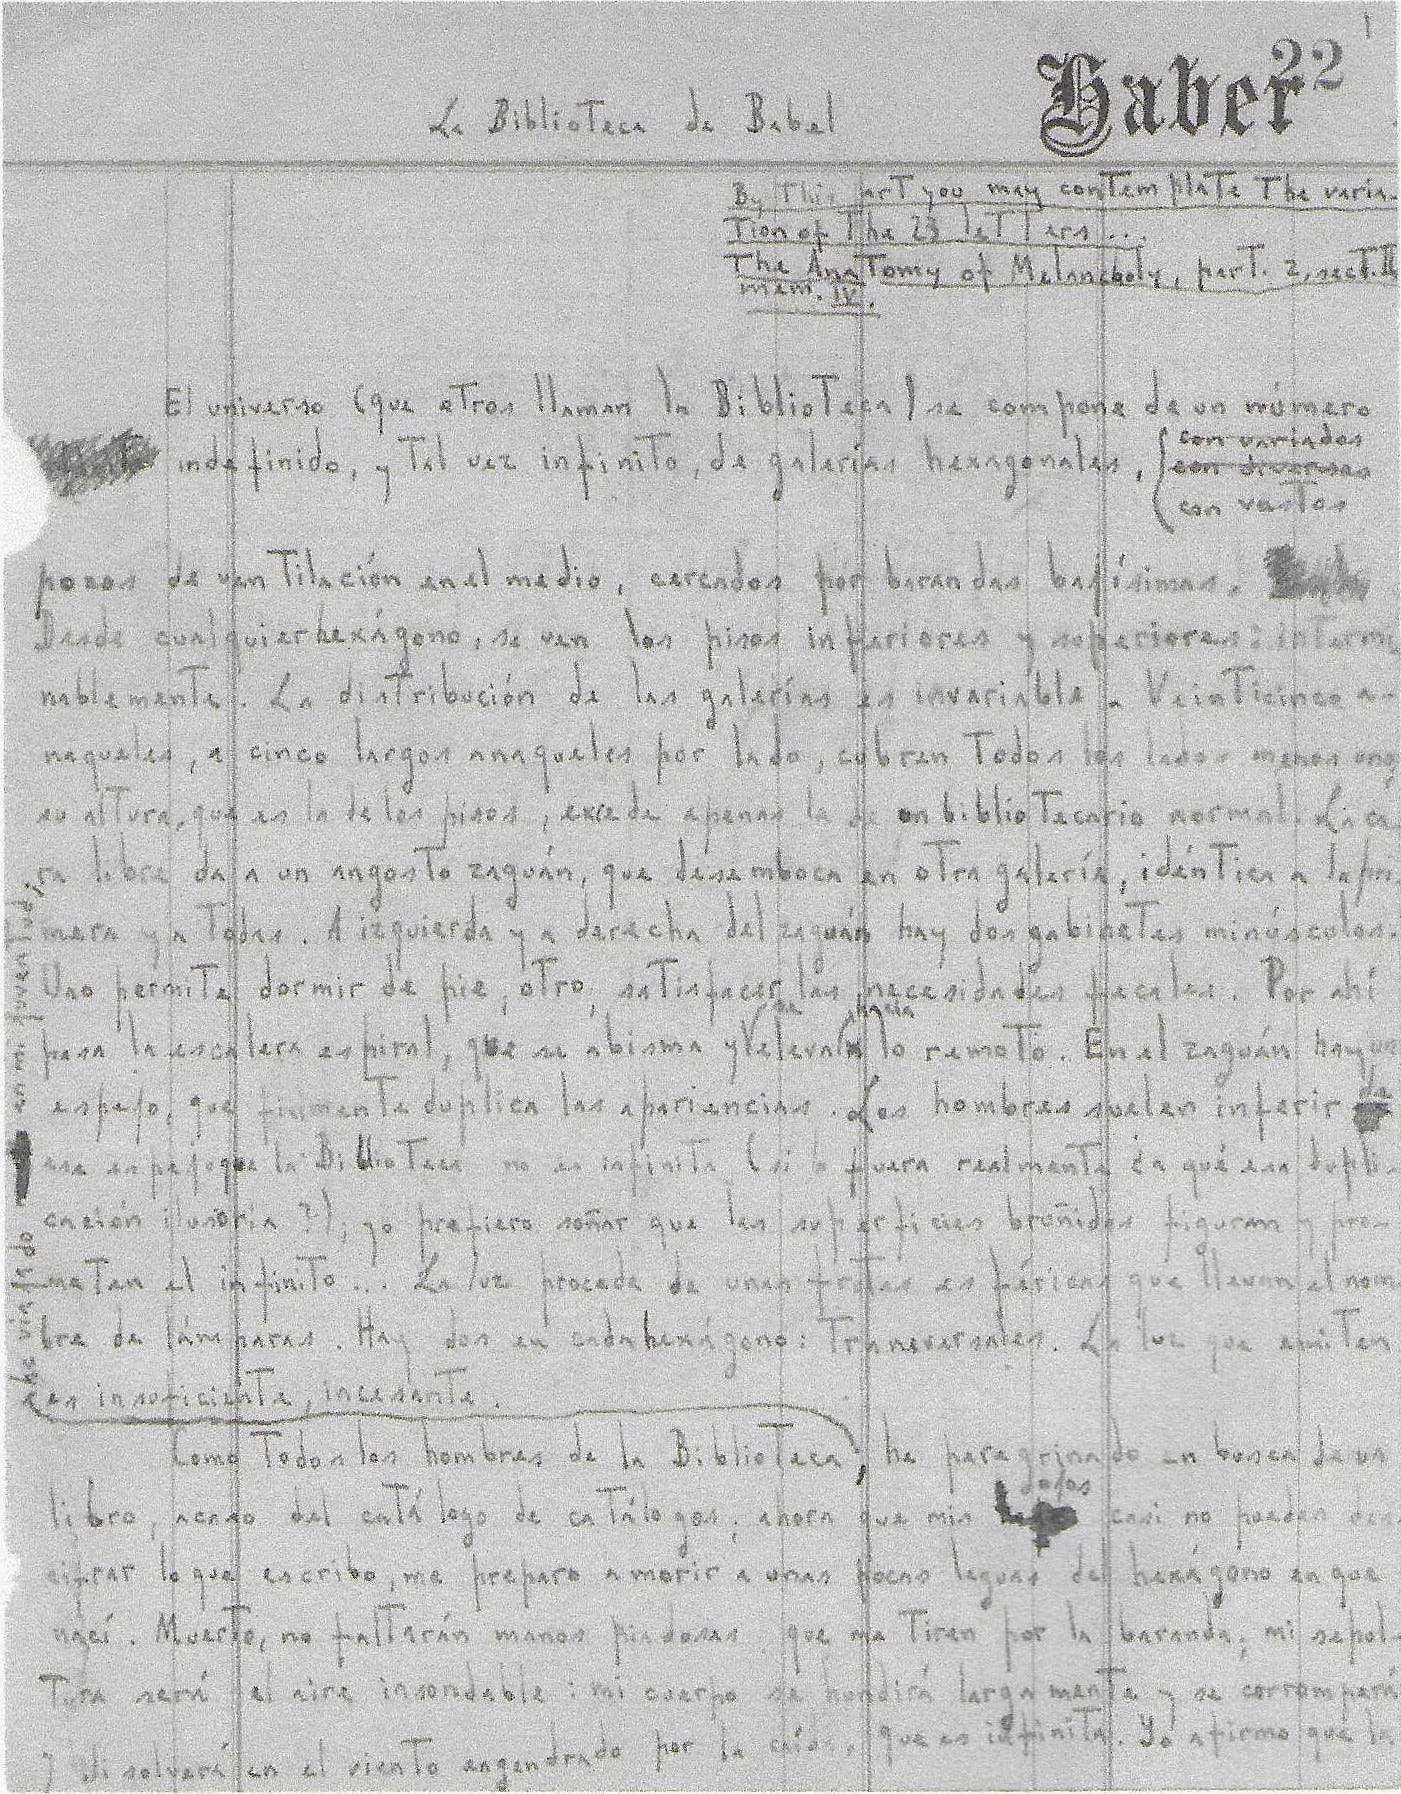 1
22
Haber
La Biblioteca de Babel
By this art you may contemplate the varia-
tion of the 23 letters...
The Anatomy of Melancholy, part. 2, sect. II
mem. IV.
El universo (que otros llaman la Biblioteca) se compone de un número
indefinido, y tal vez infinito, de galerías hexagonales,
con variados
con diversos
con vastos
pozos de ventilación en el medio, cercados por barandas bajísimas.
Desde cualquier hexágono, se ven los pisos inferiores y superiores: intermi
nablemente. La distribución de las galerías es invariable. Veinticinco a-
naqueles, a cinco largos anaqueles por lado, cubren todos los lados menos uno;
su altura, que es la de los pisos, excede apenas la de un bibliotecario normal. La ca-
ra libre da a un angosto zaguán, que desemboca en otra galería, idéntica a la pri-
mera y a todas. A izquierda y a derecha del zaguán hay dos gabinetes minúsculos.
Uno permite dormir de pie, otro, satisfacer las necesidades fecales. Por ahí
se hacia
pasa la escalera espiral, que se abisma y eleva a lo remoto. En el zaguán hay un
espejo, que fielmente duplica las apariencias. Los hombres suelen inferir de
ese espejo que la Biblioteca no es infinita (si lo fuera realmente ¿a qué esa dupli-
cación ilusoria?); yo prefiero soñar que las superficies bruñidas figuran y pro-
meten el infinito... La luz procede de unas frutas esféricas que llevan el nom
bre de lámparas. Hay dos en cada hexágono: transversales. La luz que emiten
es insuficiente, incesante.
Como todos los hombres de la Biblioteca, he peregrinado en busca de un
ojos
libro, acaso del catálogo de catálogos; ahora que mis casi no pueden des
cifrar lo que escribo, me preparo a morir a unas pocas leguas del hexágono en que
nací. Muerto, no faltarán manos piadosas que me tiren por la baranda; mi sepul-
tura será el aire insondable: mi cuerpo se hundirá largamente y se corromperá
y disolverá en el viento engendrado por la caída, que es infinita. Yo afirmo que la
he viajado en mi juventud;